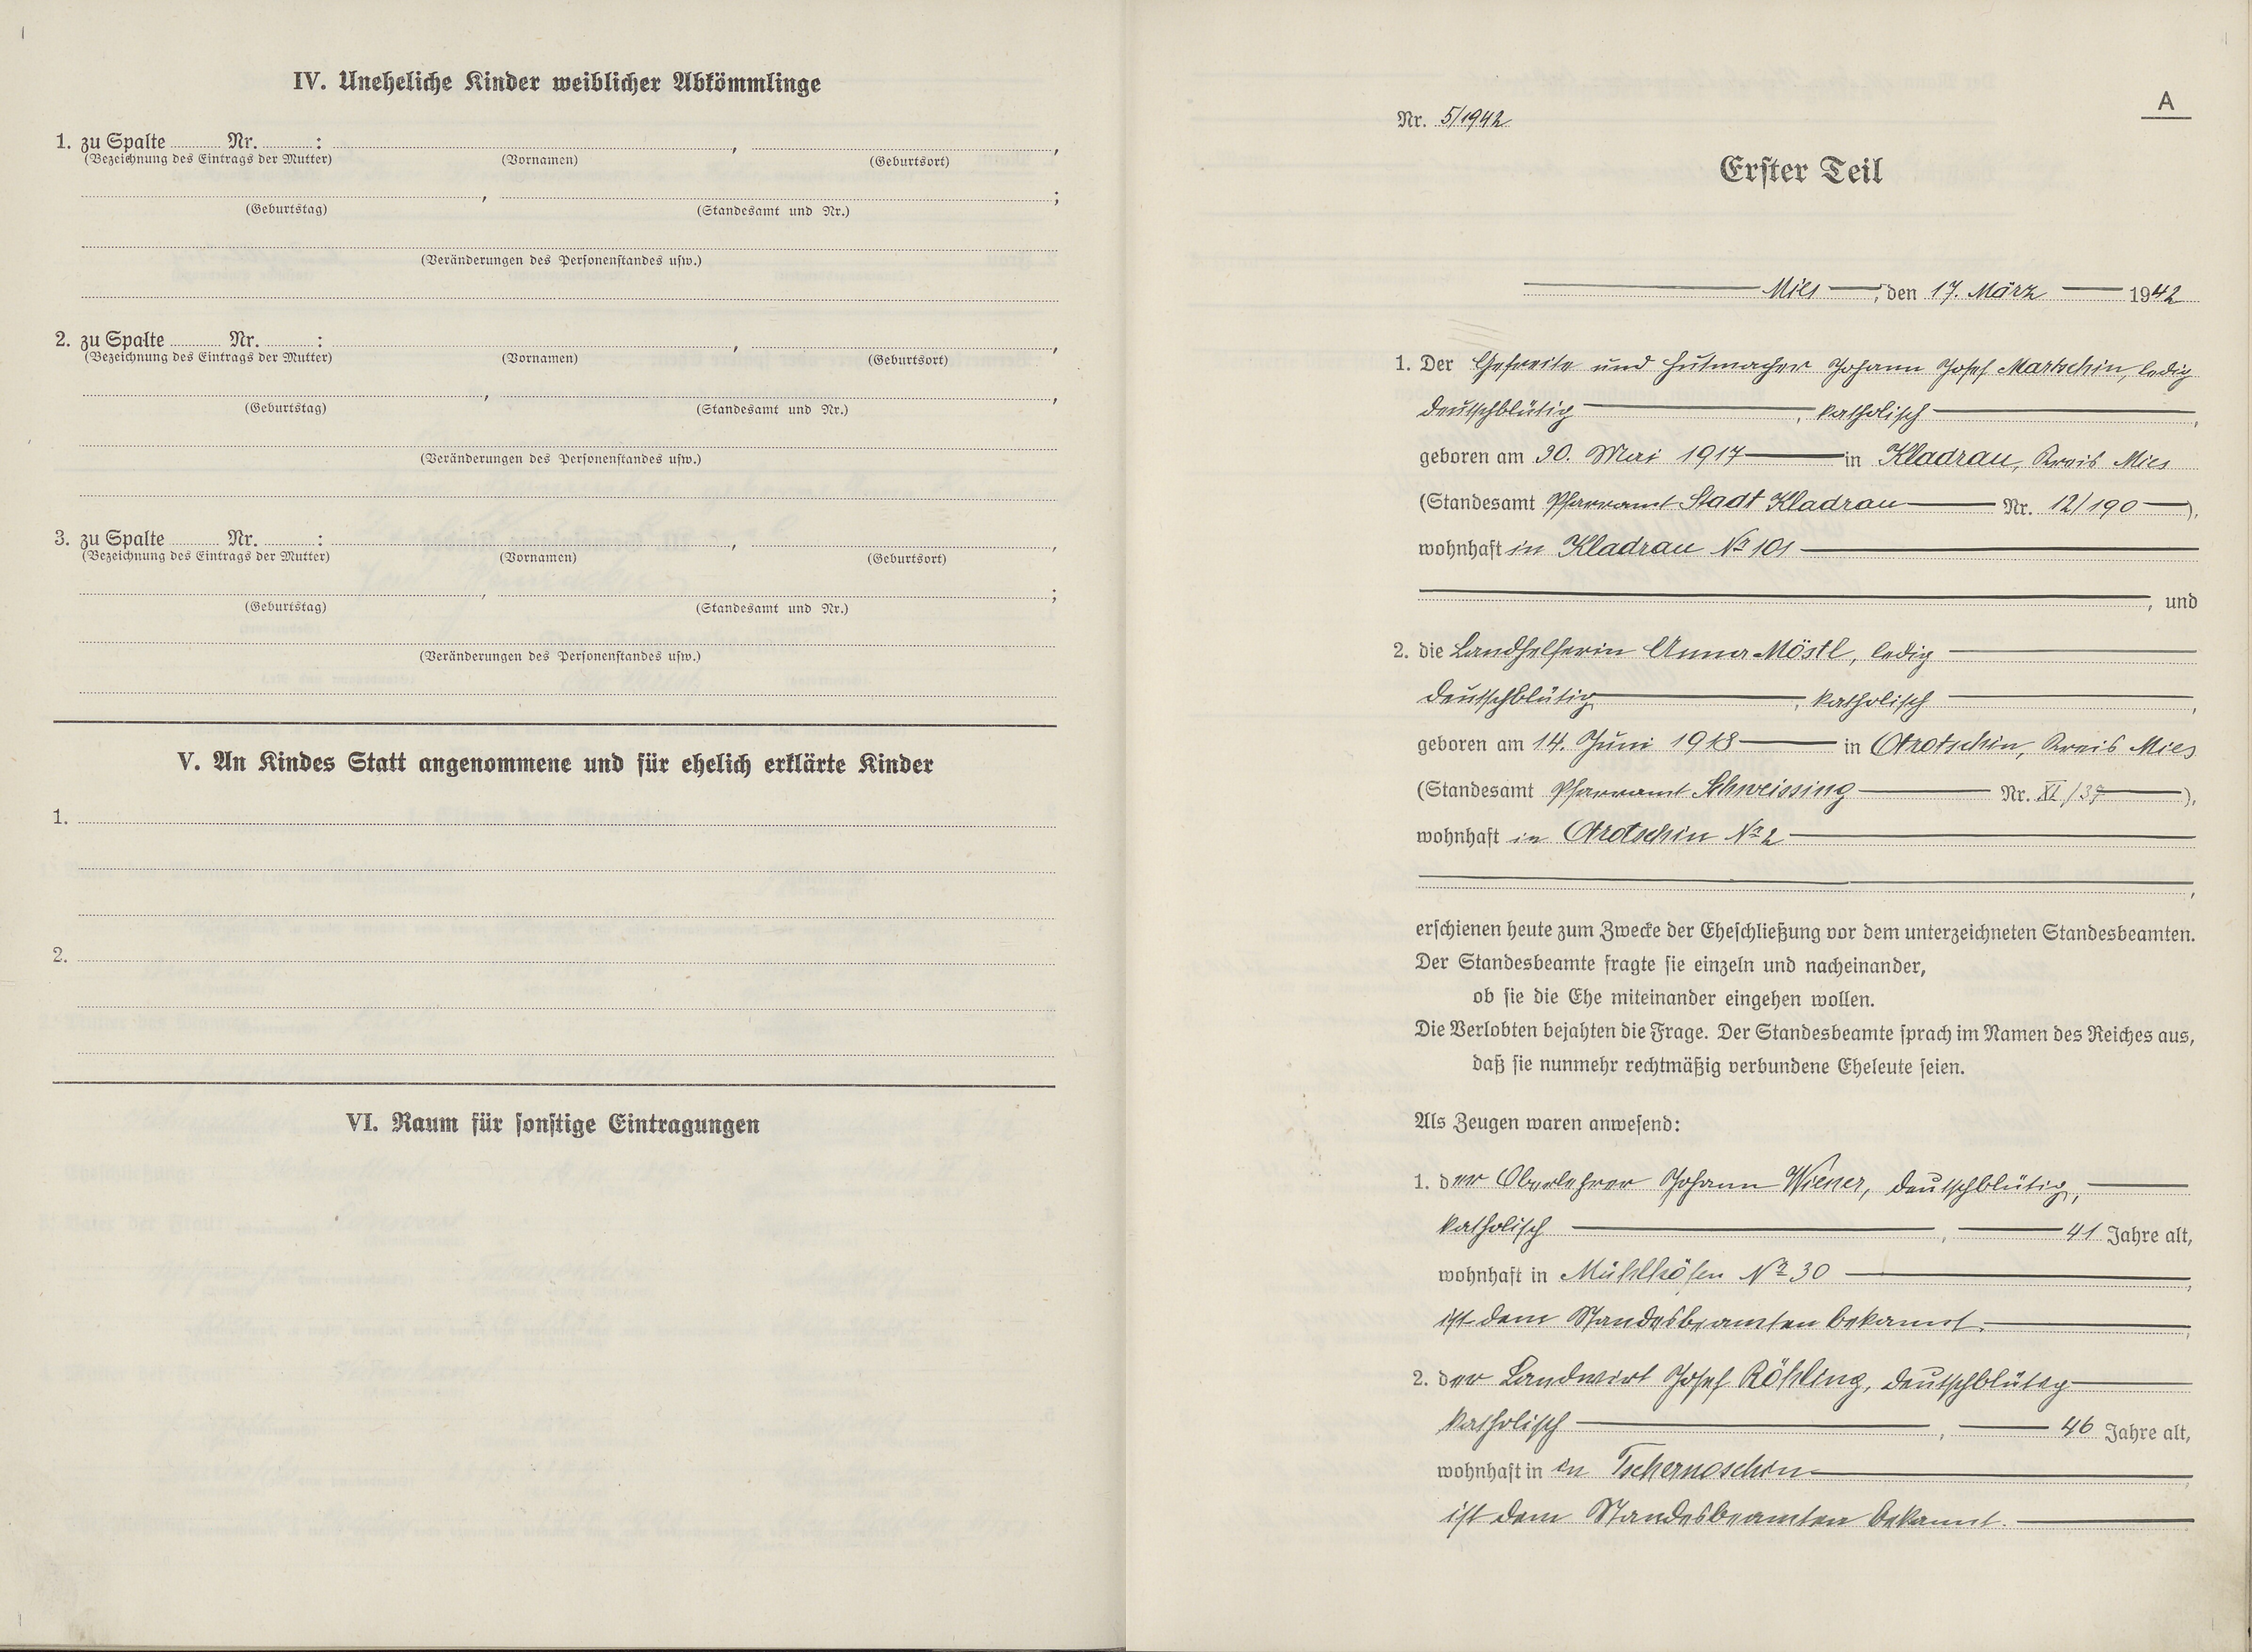 IV. Uneheliche Kinder weiblicher Abkömmlinge
1. zu Spalte ........ Nr. ........ :
(Bezeichnung des Eintrags der Mutter) (Vornamen) (Geburtsort)
(Geburtstag) (Standesamt und Nr.)
(Veränderungen des Personenstandes usw.)
2. zu Spalte ........ Nr. ........ :
(Bezeichnung des Eintrags der Mutter) (Vornamen) (Geburtsort)
(Geburtstag) (Standesamt und Nr.)
(Veränderungen des Personenstandes usw.)
3. zu Spalte ........ Nr. ........ :
(Bezeichnung des Eintrags der Mutter) (Vornamen) (Geburtsort)
(Geburtstag) (Standesamt und Nr.)
(Veränderungen des Personenstandes usw.)
V. An Kindes Statt angenommene und für ehelich erklärte Kinder
1.
2.
VI. Raum für sonstige Eintragungen
A
Nr. 5/1942
Erster Teil
Mies, den 17. März 1942
1. Der Gefreite und Hutmacher Johann Josef Martschin, ledig
deutschblütig, katholisch,
geboren am 30. Mai 1917 in Kladrau, Kreis Mies
(Standesamt Pfarramt Stadt Kladrau Nr. 12/190),
wohnhaft in Kladrau № 101
, und
2. die Landhelferin Anna Möstl, ledig
deutschblütig, katholisch,
geboren am 14. Juni 1918 in Otrotschin, Kreis Mies
(Standesamt Pfarramt Schweissing Nr. XI/37),
wohnhaft in Otrotschin № 2
,
erschienen heute zum Zwecke der Eheschließung vor dem unterzeichneten Standesbeamten.
Der Standesbeamte fragte sie einzeln und nacheinander,
ob sie die Ehe miteinander eingehen wollen.
Die Verlobten bejahten die Frage. Der Standesbeamte sprach im Namen des Reiches aus,
daß sie nunmehr rechtmäßig verbundene Eheleute seien.
Als Zeugen waren anwesend:
1. der Oberlehrer Johann Wiener, deutschblütig,
katholisch, 41 Jahre alt,
wohnhaft in Mühlhöfen № 30,
ist dem Standesbeamten bekannt.
2. der Landwirt Josef Röhling, deutschblütig
katholisch, 46 Jahre alt,
wohnhaft in in Tschernoschin
ist dem Standesbeamten bekannt.